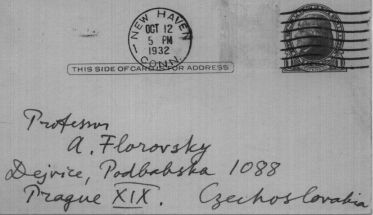 NEW HAVEN
1
OCT 12
5 PM
1932
CONN.
THIS SIDE OF CARD IS FOR ADDRESS
Professor
A. Florovsky
Dejvice, Podbabska 1088
Prague XIX. Czechoslovakia